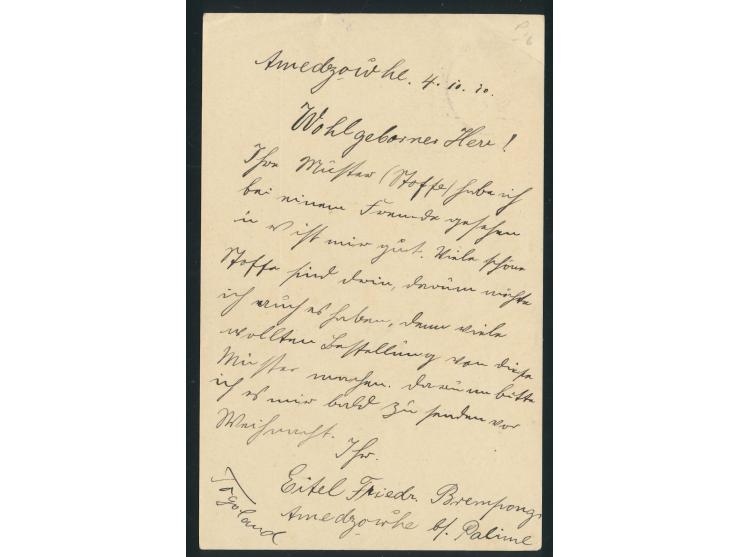 Amedzowhe. 4. 10. 10.
Wohlgeborner Herr!
Ihre Muster (Stoffe) habe ich
bei einem Freunde gesehen
u es ist mir gut. Viele schöne
Stoffe sind drin, darum möchte
ich auch es haben, denn viele
wollten Bestellung von diese
Muster machen. Darum bitte
ich es mir bald zu senden vor
Weihnacht.
Ihr.
Eitel Friedr. Brempong
Amedzowhe b/. Palime
Togoland